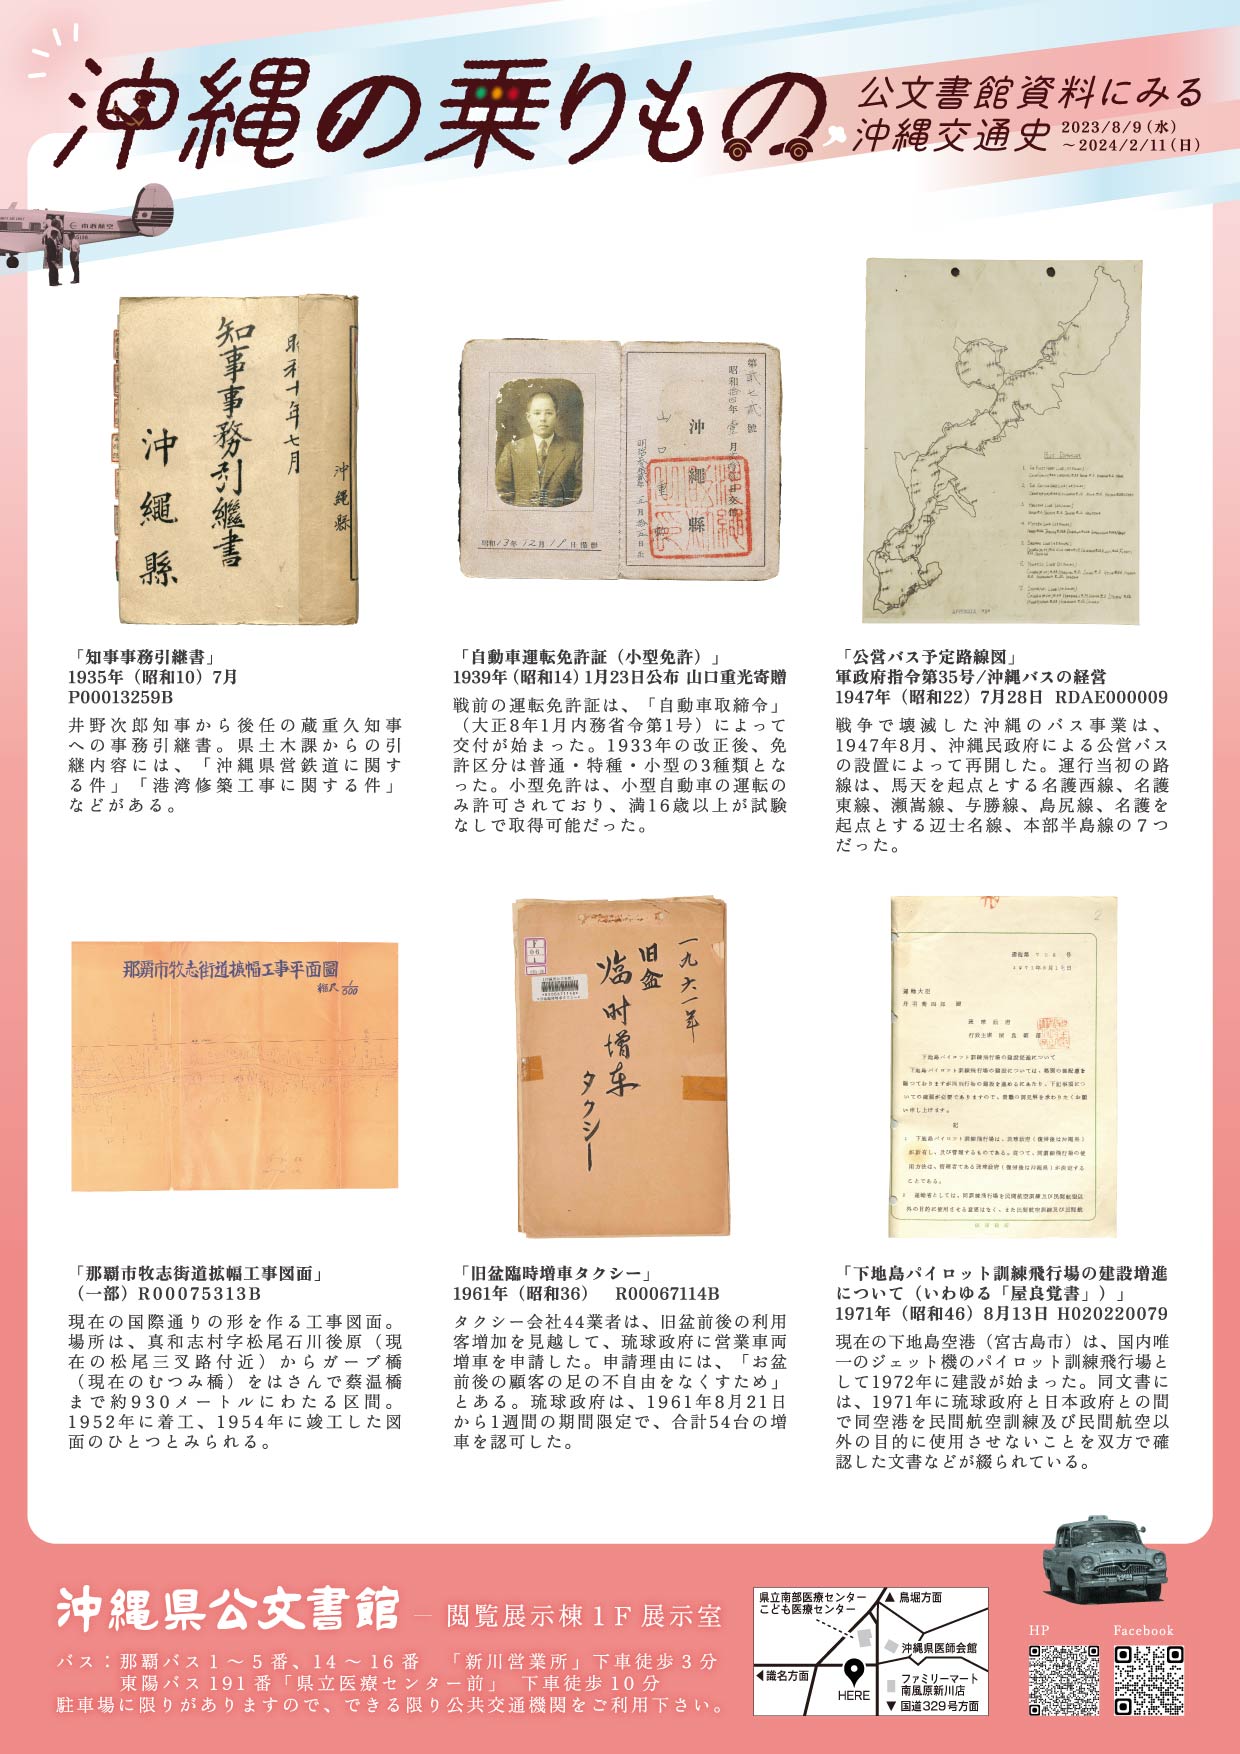 沖縄の乗りもの
公文書館資料にみる
沖縄交通史
2023/8/9(水)
～2024/2/11(日)
南西航空
昭和十年七月
知事事務引繼書
沖繩縣
沖繩縣
沖繩縣
昭和13年12月18日撮影
「知事事務引継書」
1935年（昭和10）7月
P00013259B
井野次郎知事から後任の蔵重久知事
への事務引継書。県土木課からの引
継内容には、「沖縄県営鉄道に関す
る件」「港湾修築工事に関する件」
などがある。
「自動車運転免許証（小型免許）」
1939年（昭和14）1月23日公布 山口重光寄贈
戦前の運転免許証は、「自動車取締令」
（大正8年1月内務省令第1号）によって
交付が始まった。1933年の改正後、免
許区分は普通・特種・小型の3種類とな
った。小型免許は、小型自動車の運転の
み許可されており、満16歳以上が試験
なしで取得可能だった。
「公営バス予定路線図」
軍政府指令第35号/沖縄バスの経営
1947年（昭和22）7月28日 RDAE000009
戦争で壊滅した沖縄のバス事業は、
1947年8月、沖縄民政府による公営バス
の設置によって再開した。運行当初の路
線は、馬天を起点とする名護西線、名護
東線、瀬嵩線、与勝線、島尻線、名護を
起点とする辺士名線、本部半島線の７つ
だった。
那覇市牧志街道拡幅工事平面圖
縮尺 1/500
一九六一年
旧盆
臨時増車
タクシー
「那覇市牧志街道拡幅工事図面」
（一部）R00075313B
現在の国際通りの形を作る工事図面。
場所は、真和志村字松尾石川後原（現
在の松尾三叉路付近）からガーブ橋
（現在のむつみ橋）をはさんで蔡温橋
まで約930メートルにわたる区間。
1952年に着工、1954年に竣工した図
面のひとつとみられる。
「旧盆臨時増車タクシー」
1961年（昭和36） R00067114B
タクシー会社44業者は、旧盆前後の利用
客増加を見越して、琉球政府に営業車両
増車を申請した。申請理由には、「お盆
前後の顧客の足の不自由をなくすため」
とある。琉球政府は、1961年8月21日
から1週間の期間限定で、合計54台の増
車を認可した。
「下地島パイロット訓練飛行場の建設増進
について（いわゆる「屋良覚書」）」
1971年（昭和46）8月13日 H020220079
現在の下地島空港（宮古島市）は、国内唯
一のジェット機のパイロット訓練飛行場と
して1972年に建設が始まった。同文書に
は、1971年に琉球政府と日本政府との間
で同空港を民間航空訓練及び民間航空以
外の目的に使用させないことを双方で確
認した文書などが綴られている。
沖縄県公文書館 ― 閲覧展示棟１Ｆ展示室
バス：那覇バス１～５番、14～16番 「新川営業所」下車徒歩３分
東陽バス 191番「県立医療センター前」 下車徒歩10分
駐車場に限りがありますので、できる限り公共交通機関をご利用下さい。
県立南部医療センター
こども医療センター
▲鳥堀方面
沖縄県医師会館
◀識名方面
HERE
ファミリーマート
南風原新川店
▼国道329号方面
HP
Facebook